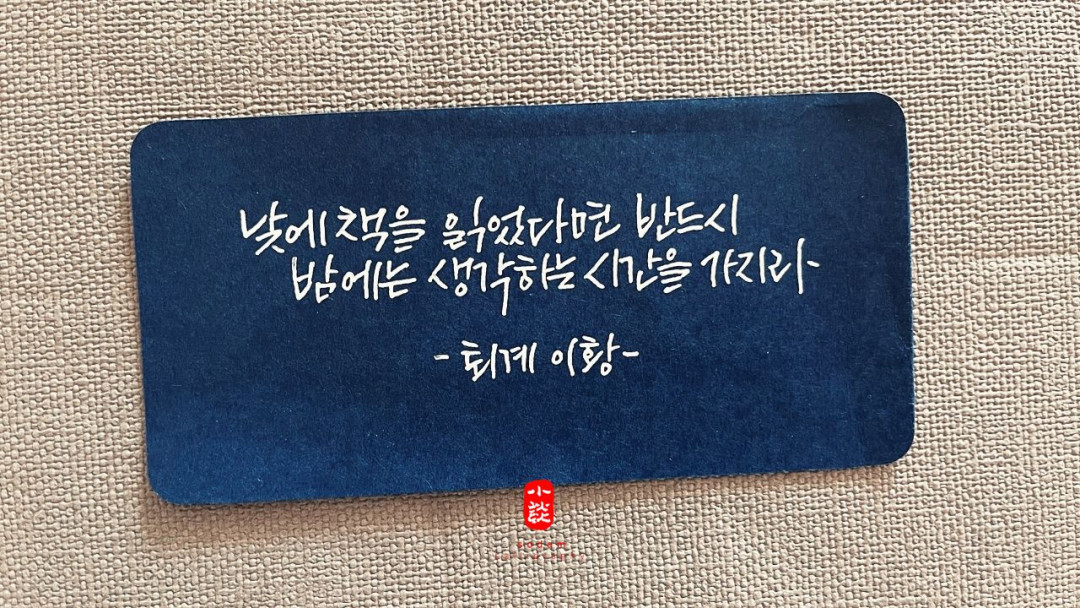 낮에 책을 읽었다면 반드시
밤에는 생각하는 시간을 가지라
- 퇴계 이황 -
小談